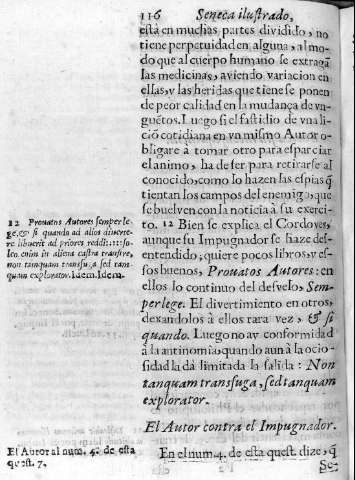 116 Seneca ilustrado,
está en muchas partes dividido, no
tiene perpetuidad en alguna, al mo-
do que al cuerpo humano se extragã
las medicinas, aviendo variacion en
ellas, y las heridas que tiene se ponen
de peor calidad en la mudança de vn-
guẽtos. Luego si el fastidio de vna li-
ció cotidiana en vn mismo Autor o-
bligare à tomar otro para esparciar
el animo, ha de ser para retirarse al
conocido, como lo hazen las espias q̃
tientan los campos del enemigo, que
se buelven con la noticia à su exerci-
to. 12 Bien se explica el Cordovès,
aunque su Impugnador se haze des-
entendido, quiere pocos libros, y es-
sos buenos, Provatos Autores: en
ellos lo continuo del desvelo, Sem-
per lege. El divertimiento en otros,
dexandolos à ellos rara vez, & si
quando. Luego no ay conformidad
à la antinomia, quando aun à la ocio-
sidad la dà limitada la salida: Non
tanquam transfuga, sed tanquam
explorator.
El Autor contra el Impugnador.
En el num. 4. de esta quest. dize, q̃
Se-
12 Provatos Autores semper le-
ge, & si quando ad alios diverte-
re libuerit ad priores redi:::: so-
leo enim in aliena castra transire,
non tanquam transfuga sed tan-
quam explorator. Idem. Idem.
El Autor al num. 4. de esta
quest. 7.